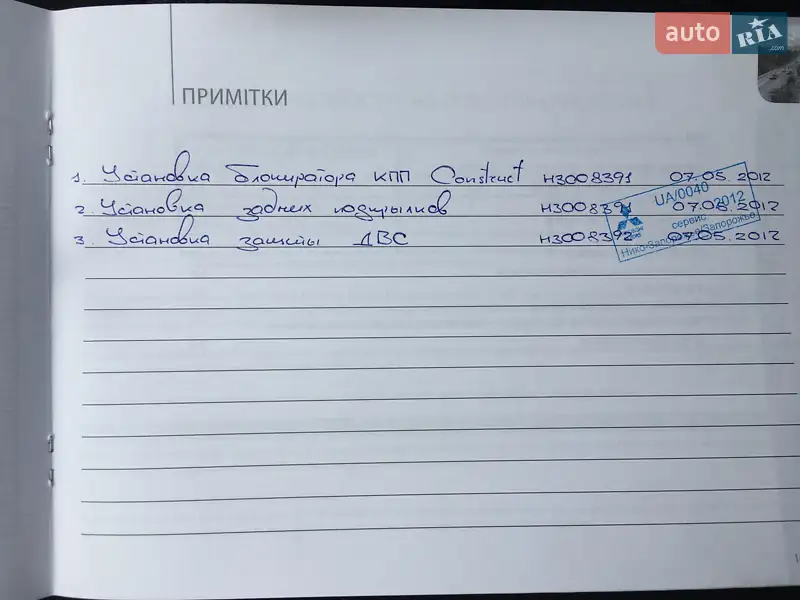 auto RIA .com
ПРИМІТКИ
1. Установка блокиратора КПП Construct НЗ008391 07.05.2012
2. Установка задних подкрылков НЗ008391 07.05.2012
3. Установка защиты ДВС НЗ008392 07.05.2012
UA/0040
2012
сервис